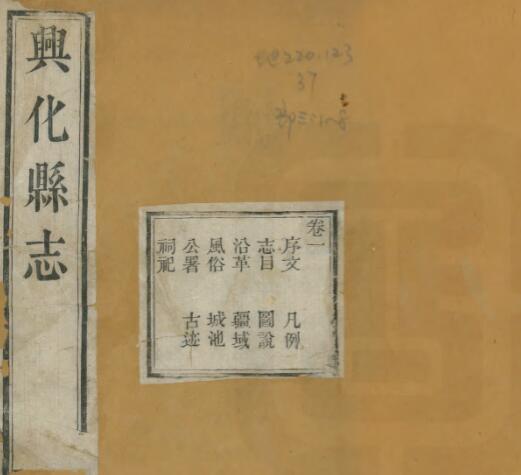 興化縣志
卷一
序文 凡例
志目 圖說
沿革 疆域
風俗 城池
公署 古迹
祠祀
220.123
37